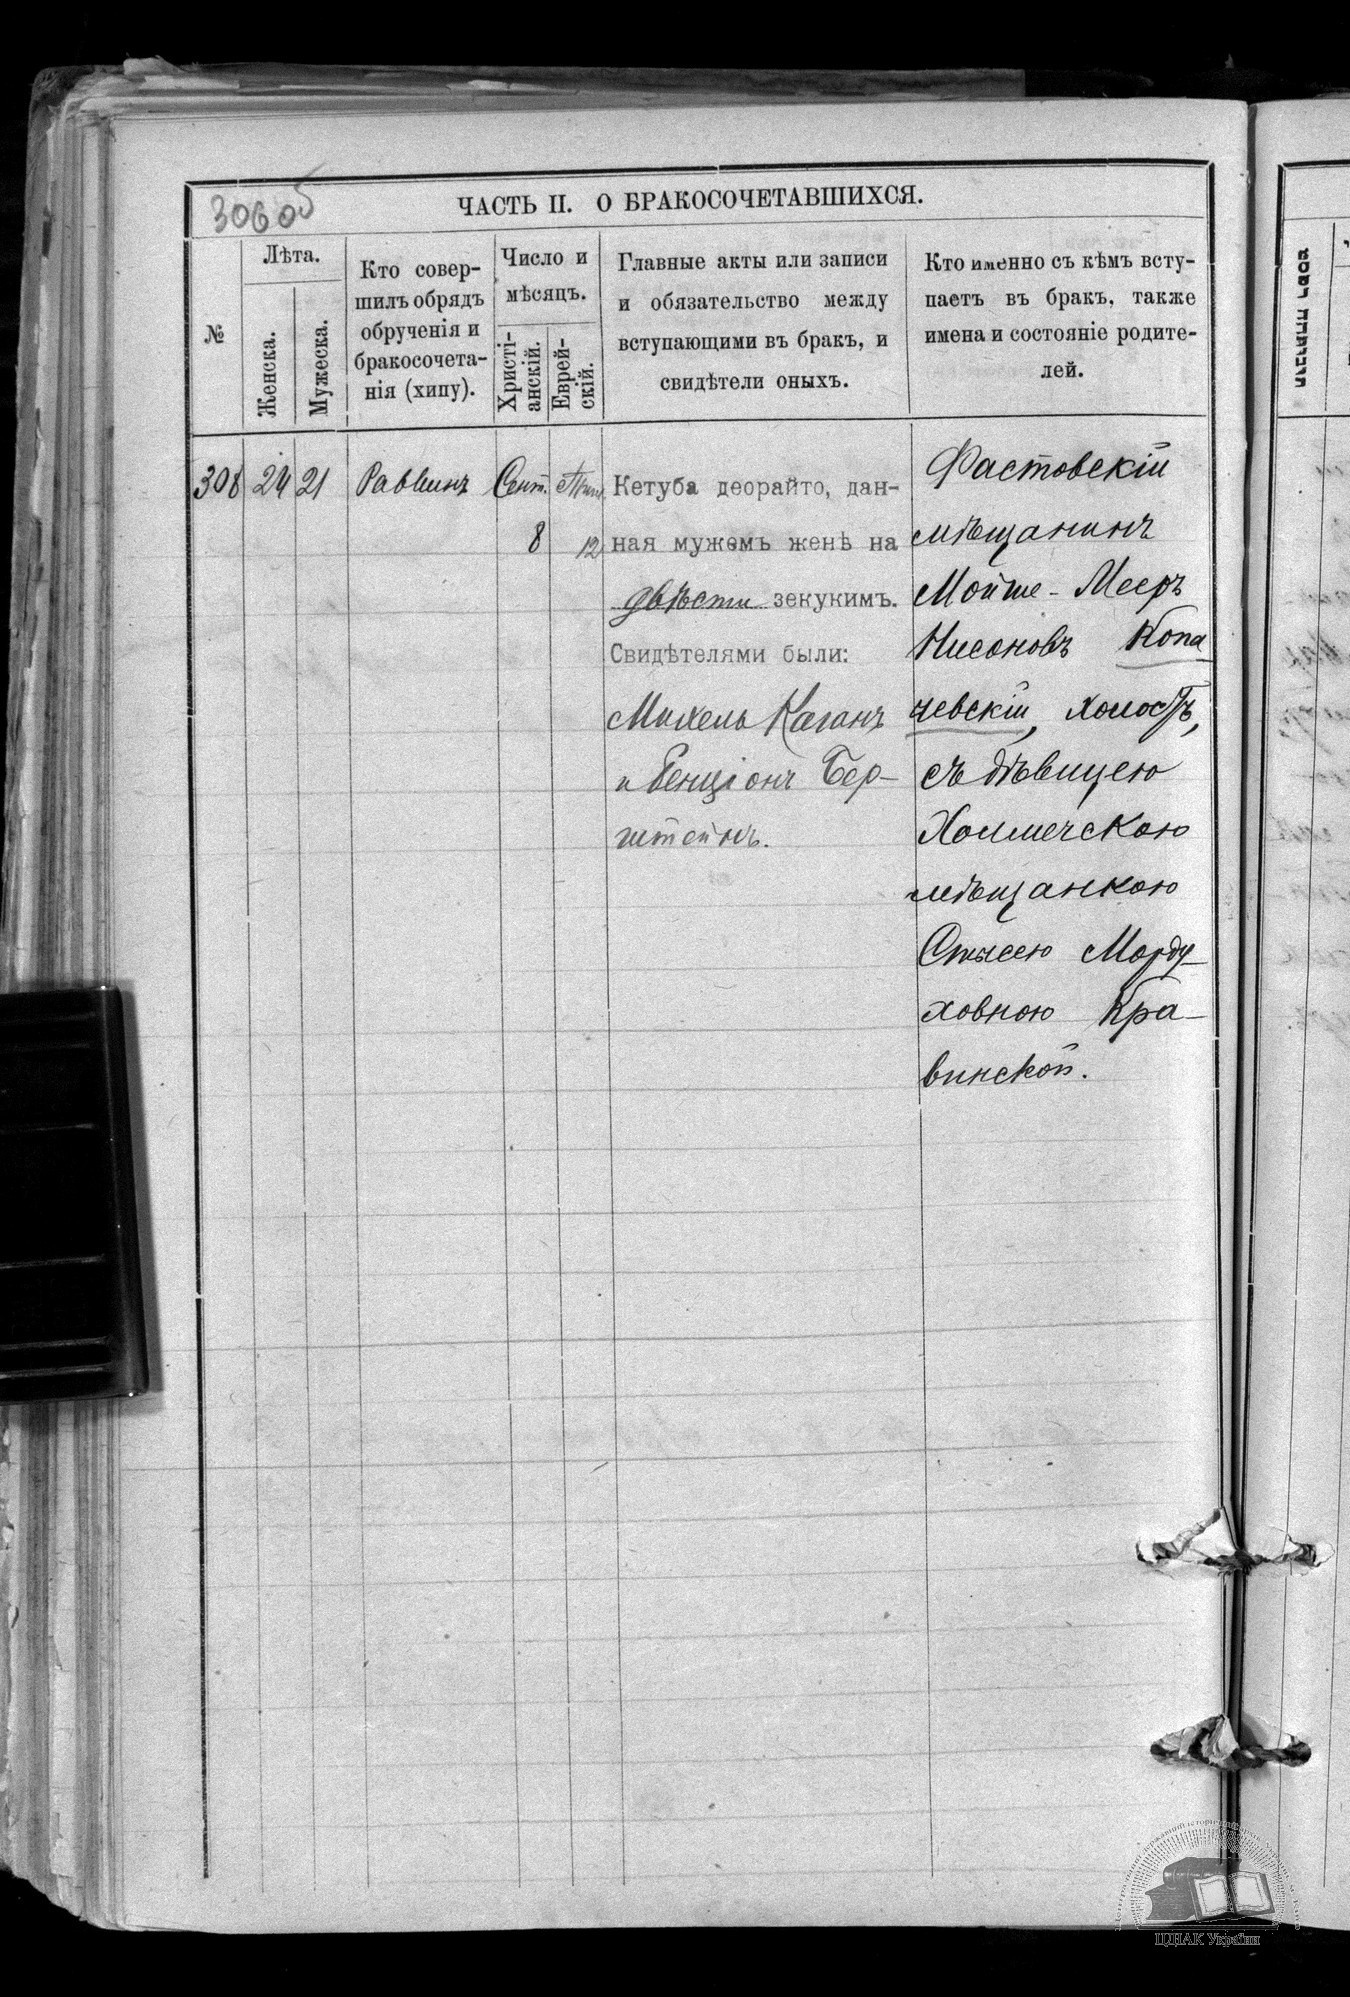 306об
ЧАСТЬ II. О БРАКОСОЧЕТАВШИХСЯ.
№
Лѣта.
Женска.
Мужеска.
Кто совер-
шилъ обрядъ
обрученія и
бракосочета-
нія (хипу).
Число и
мѣсяцъ.
Христі-
анскій.
Еврей-
скій.
Главные акты или записи
и обязательство между
вступающими въ бракъ, и
свидѣтели оныхъ.
Кто именно съ кѣмъ всту-
паетъ въ бракъ, также
имена и состояніе родите-
лей.
308
24
21
Раввинъ
Сент.
8
12
Кетуба деорайто, дан-
ная мужемъ женѣ на
двѣсти зекукимъ.
Свидѣтелями были:
Михель Каганъ
и Бенціонъ Бер-
штейнъ.
Фастовскій
мѣщанинъ
Мойше-Мееръ
Нисоновъ Копа
чевскій, холостъ,
съ дѣвицею
Холмечскою
мѣщанкою
Стысею Морду-
ховною Кра-
винской.
ЦДІАК України